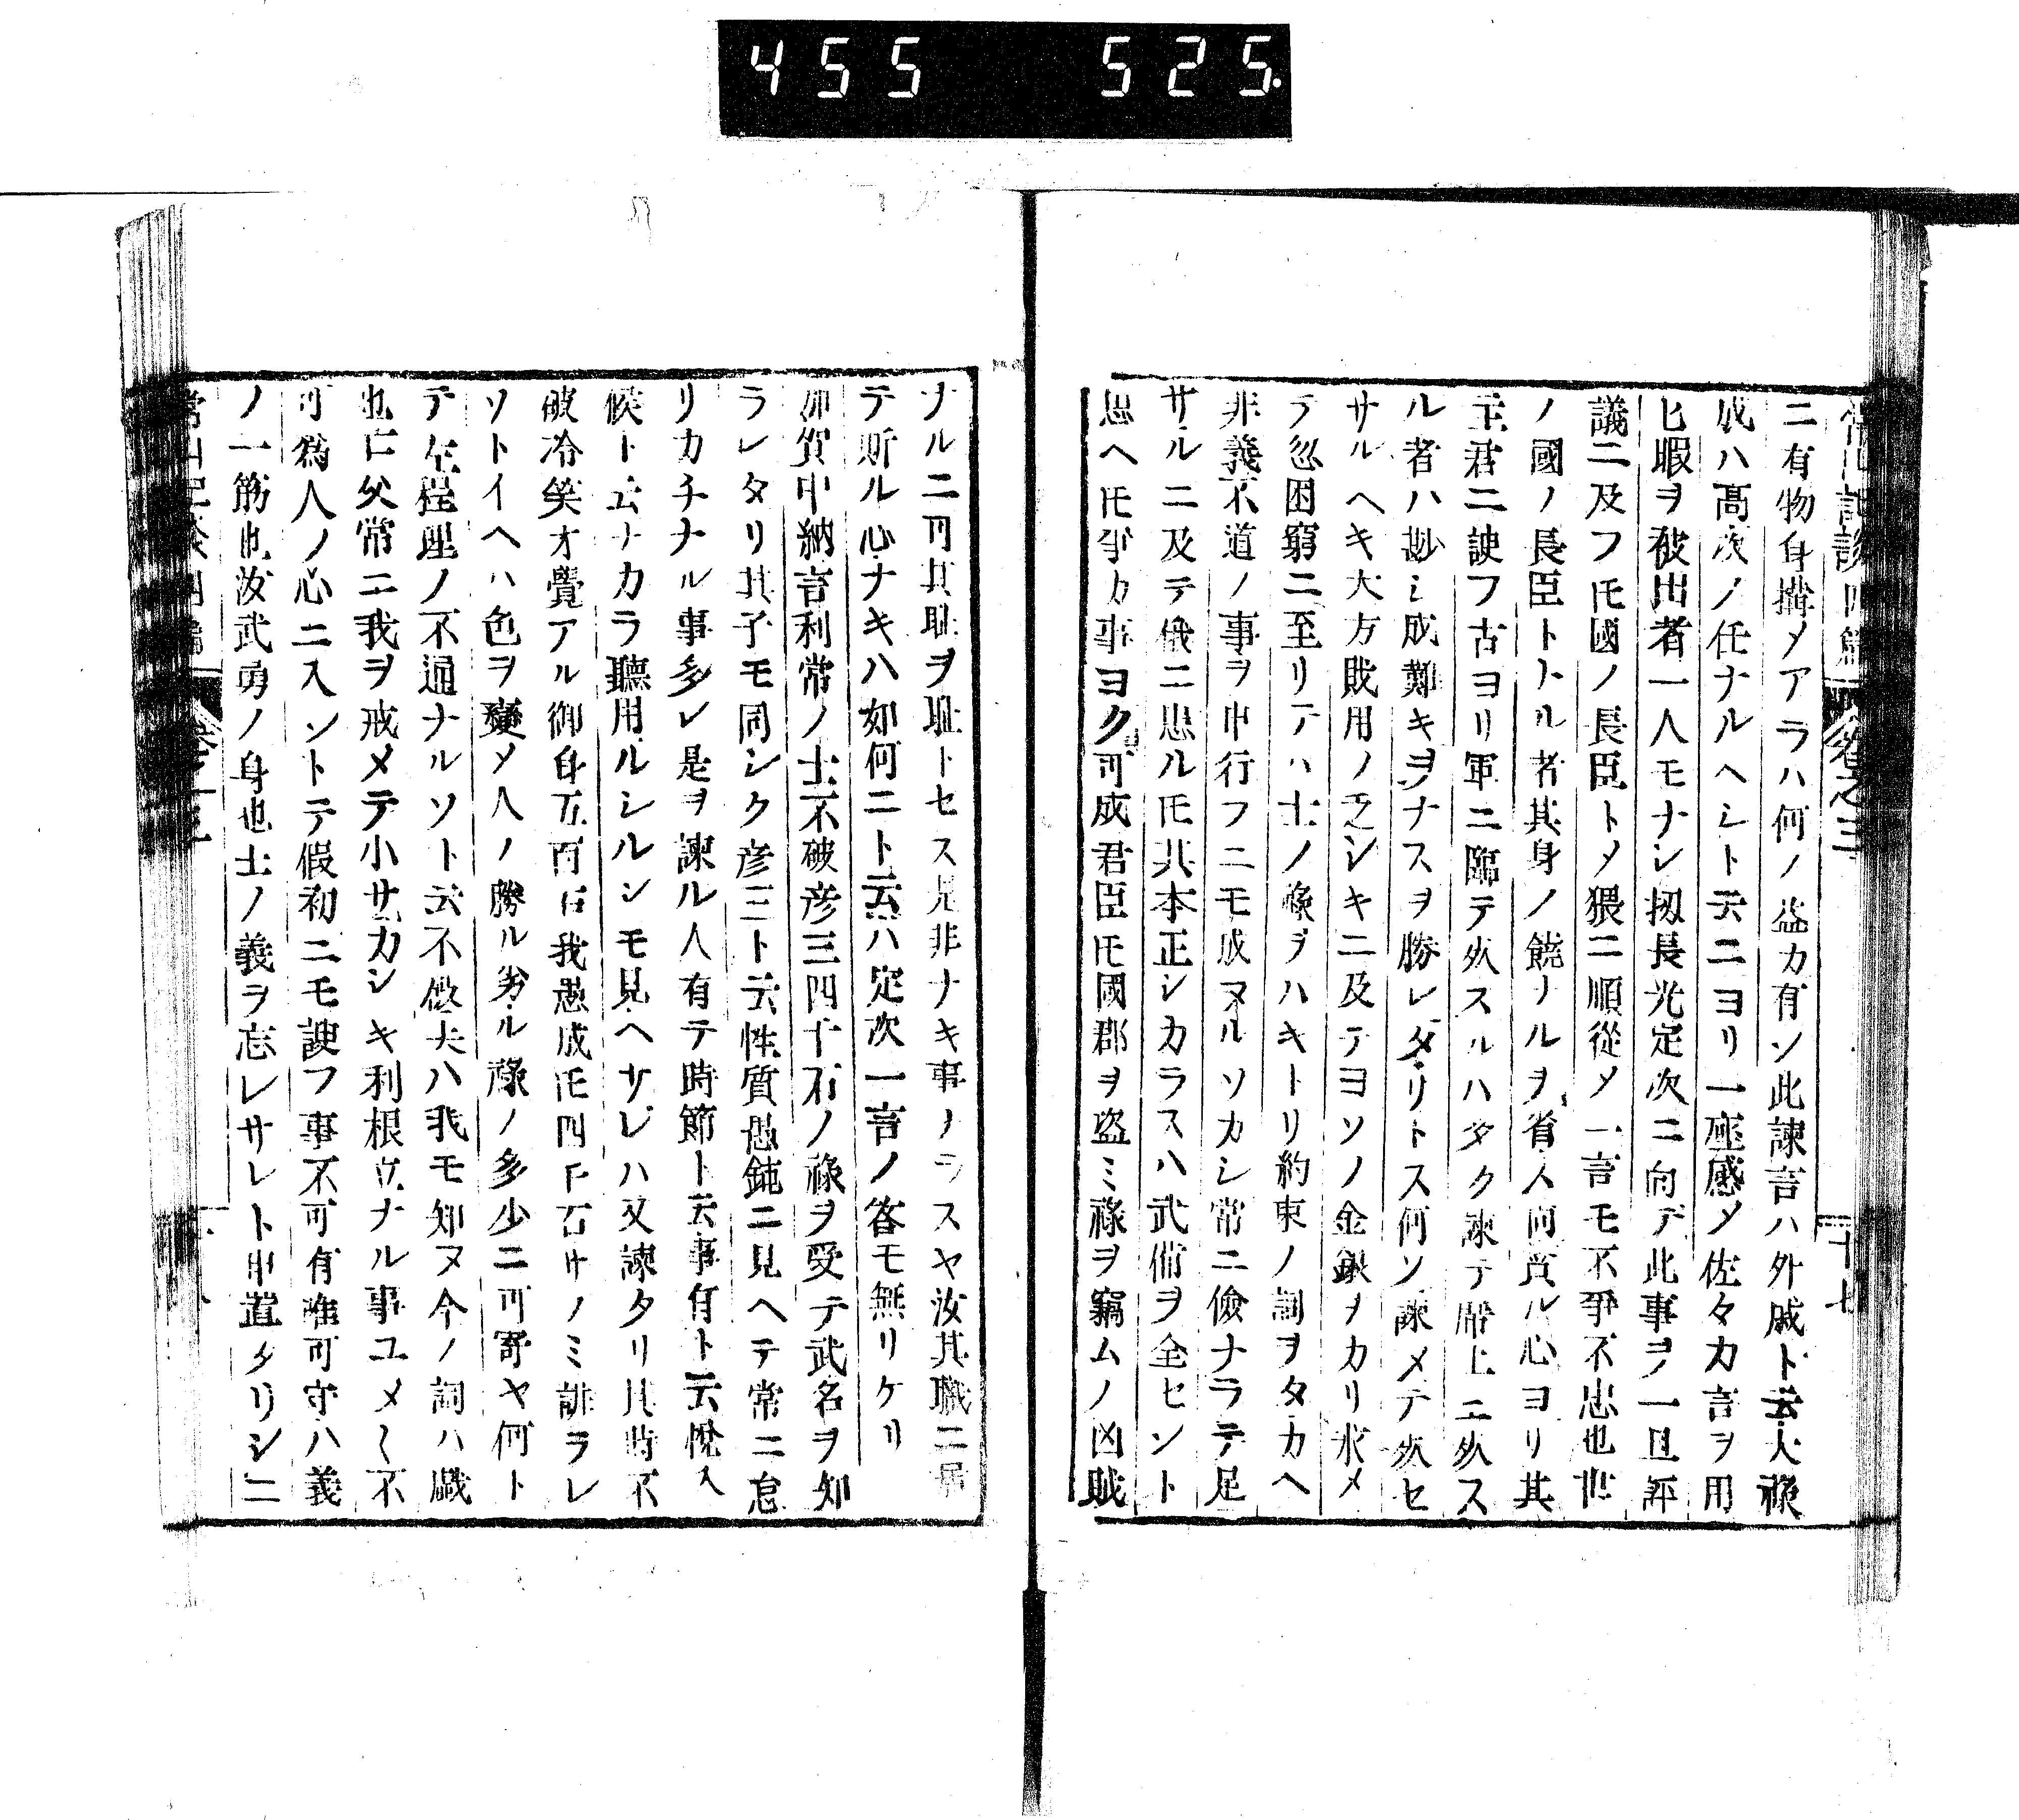 455 525.
ニ有物自搆メアラハ何ノ益カ有ン此諫言ハ外戚ト云大祿
成ハ髙次ノ任ナルヘシト云ニヨリ一座感メ佐々カ言ヲ用
ヒ暇ヲ被出者一人モナシ扨長光定次ニ向テ此事ヲ一旦評
議ニ及フ𪜈國ノ長臣トメ猥ニ順從メ一言モ不爭不忠也世
ノ國ノ長臣トトル者其身ノ饒ナルヲ省ス何貪ル心ヨリ其
主君ニ諛フ古ヨリ軍ニ臨テ死スルハタク諫テ牀上ニ死ス
ル者ハ尠シ成難キヲナスヲ勝レタリトス何ソ諫メテ死セ
サルヘキ大方財用ノ乏シキニ及テヨソノ金銀ヲカリ求メ
テ忽困窮ニ至リテハ士ノ祿ヲハキトリ約束ノ詞ヲタカヘ
非義不道ノ事ヲ申行フニモ成ヌルソカシ常ニ儉ナラテ足
サルニ及テ俄ニ思ル𪜈其本正シカラスハ武備ヲ全セント
思ヘ𪜈爭カ事ヨク可成君臣𪜈國郡ヲ盗ミ祿ヲ竊ムノ凶賊
ナルニ可其耻ヲ耻トセス是非ナキ事ノラスヤ汝其職ニ居
テ斯ル心ナキハ如何ニト云ハ定次一言ノ答モ無リケリ
加賀中納言利常ノ士不破彦三四千石ノ祿ヲ受テ武名ヲ知
ラレタリ其子モ同シク彦三ト云性質愚鈍ニ見ヘテ常ニ怠
リカチナル事多レ是ヲ諫ル人有テ時節ト云事有ト云悦入
候ト云ナカラ聽用ルシルシモ見ヘサレハ又諫タリ其時不
破冷笑オ覺アル御身五百石我愚成𪜈四千石サノミ誹ラレ
ソトイヘハ色ヲ變メ人ノ勝ル劣ル祿ノ多少ニ可寄ヤ何ト
テ左程理ノ不通ナルソト云不破夫ハ我モ知ヌ今ノ詞ハ戯
也亡父常ニ我ヲ戒メテ小サカシキ利根立ナル事ユメ〱不
可爲人ノ心ニ入ントテ假初ニモ諛フ事不可有唯可守ハ義
ノ一筋也汝武勇ノ身也士ノ義ヲ忘レサレト申置タリシニ